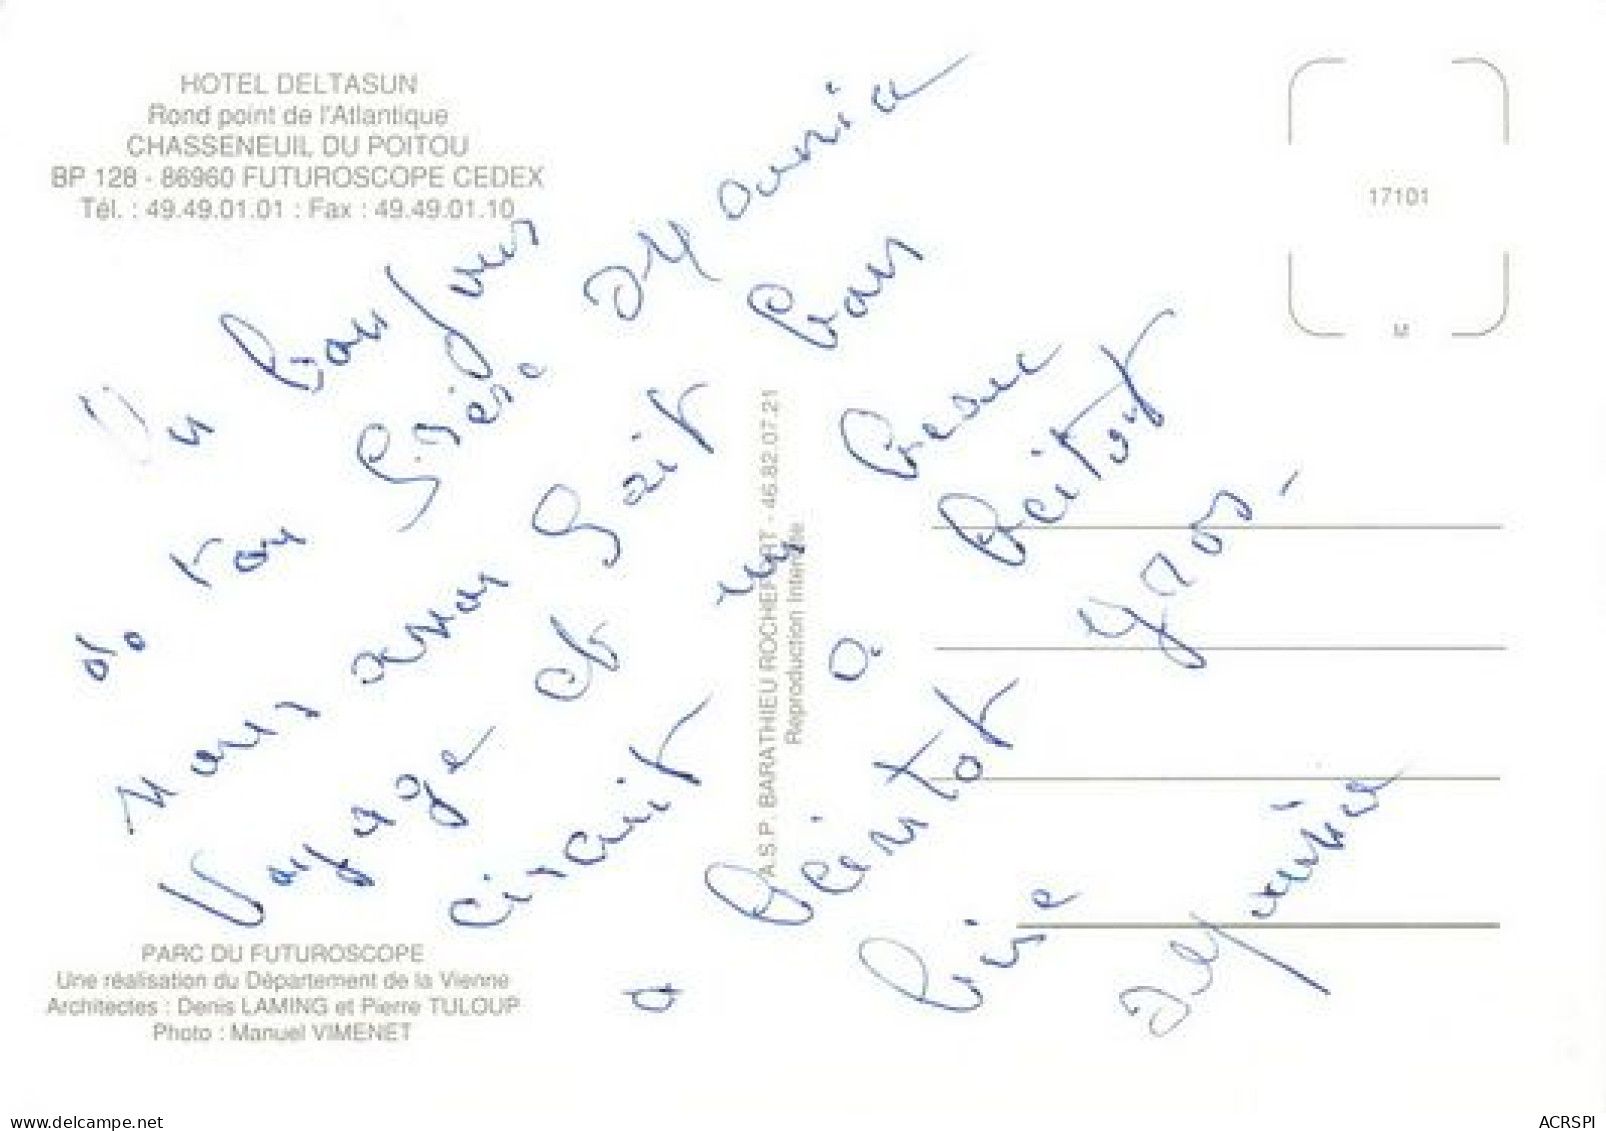 HOTEL DELTASUN
Rond point de l'Atlantique
CHASSENEUIL DU POITOU
BP 128 - 86960 FUTUROSCOPE CEDEX
Tél. : 49.49.01.01 : Fax : 49.49.01.10
17101
M
Un Bonjour
de ton Frère
Nous avons Fait Bon
Voyage et
circuit
a Bientot
Bise
A.S.P. BARATHIEU ROCHEFORT - 46.82.07.21
Reproduction Interdite
PARC DU FUTUROSCOPE
Une réalisation du Département de la Vienne
Architectes : Denis LAMING et Pierre TULOUP
Photo : Manuel VIMENET
www.delcampe.net
ACRSPI